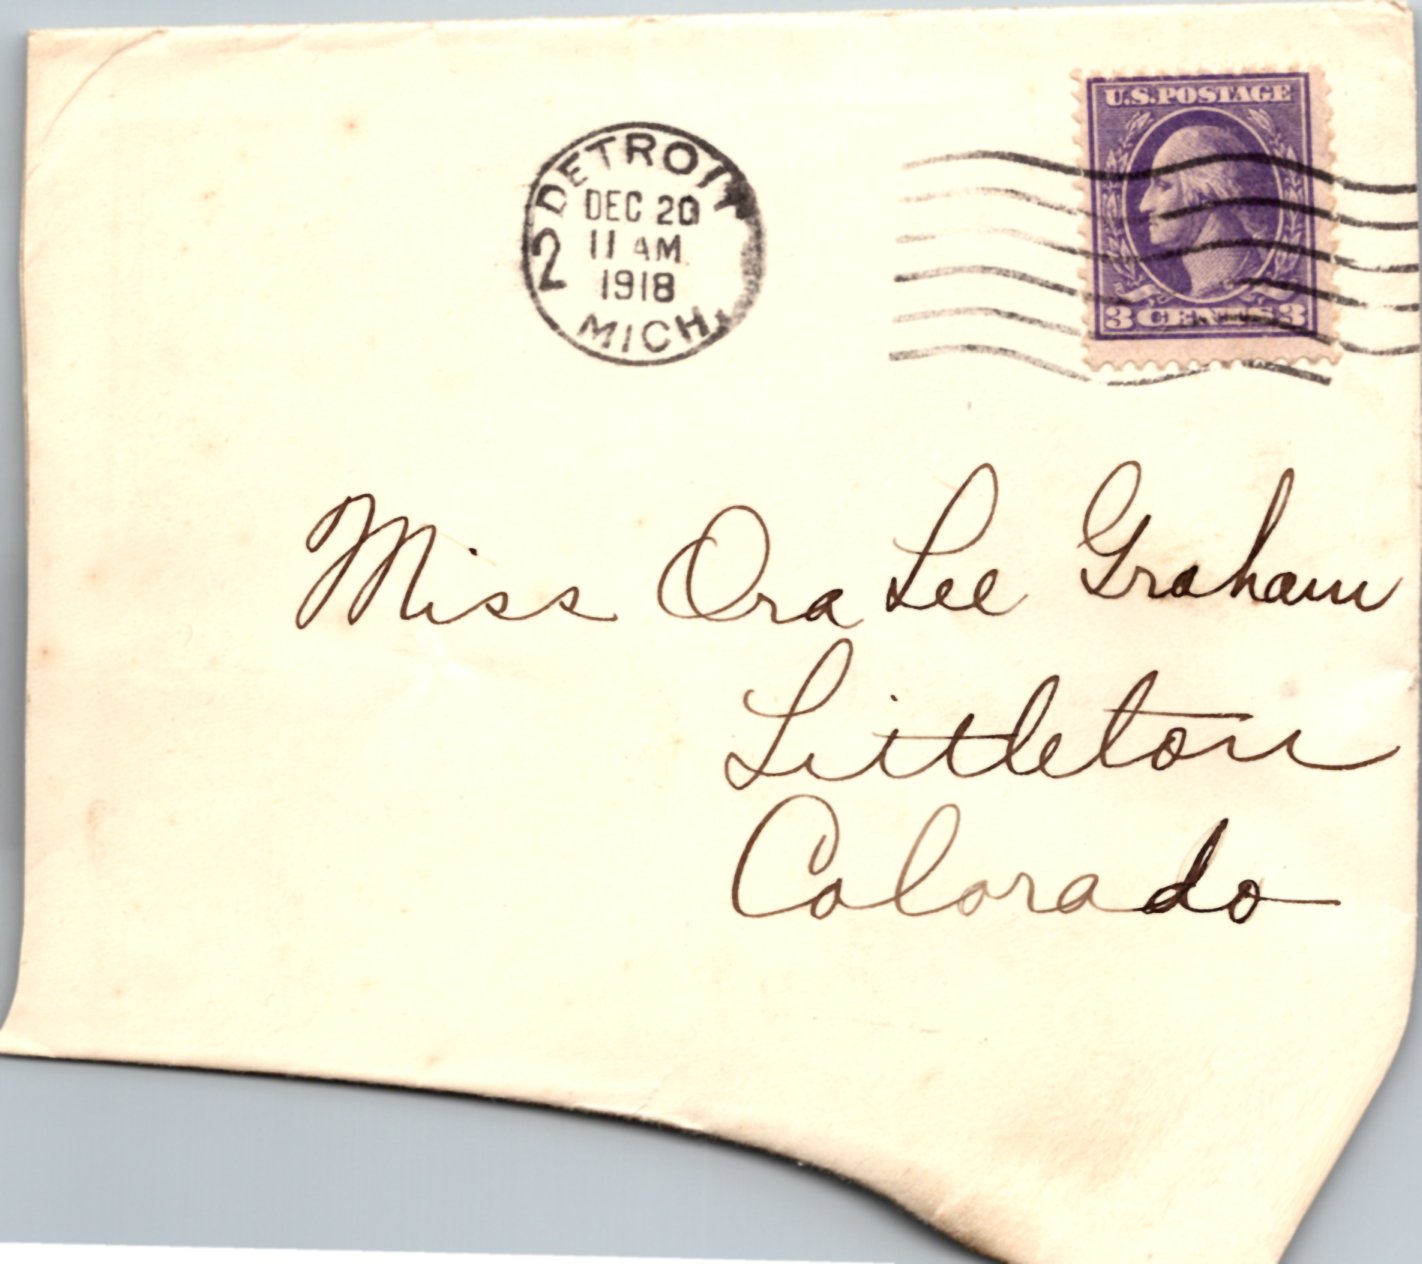 U.S.POSTAGE
3 CENTS 3
DETROIT
DEC 20
11 AM
1918
2
MICH.
Miss Ora Lee Graham
Littleton
Colorado